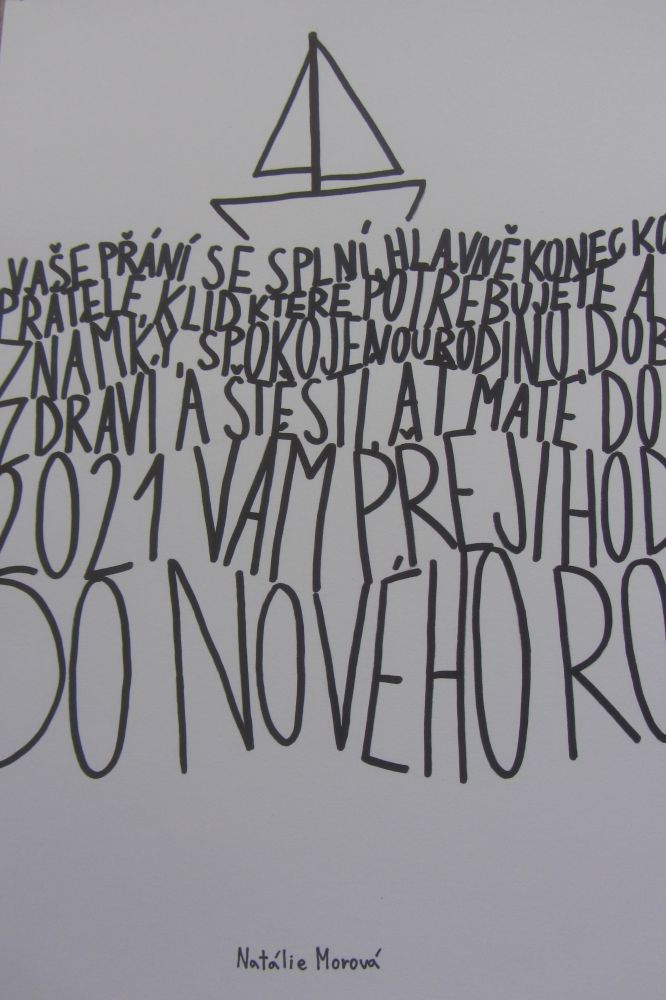 VAŠE PŘÁNÍ SE SPLNÍ, HLAVNĚ KONEC KO
PŘÁTELÉ, KLID KTERÉ POTŘEBUJETE A
ZNÁMKY, SPOKOJENOU RODINU, DOB
ZDRAVÍ A ŠTĚSTÍ, AŤ MÁTE DO
2021 VÁM PŘEJI HOD
DO NOVÉHO RO
Natálie Morová